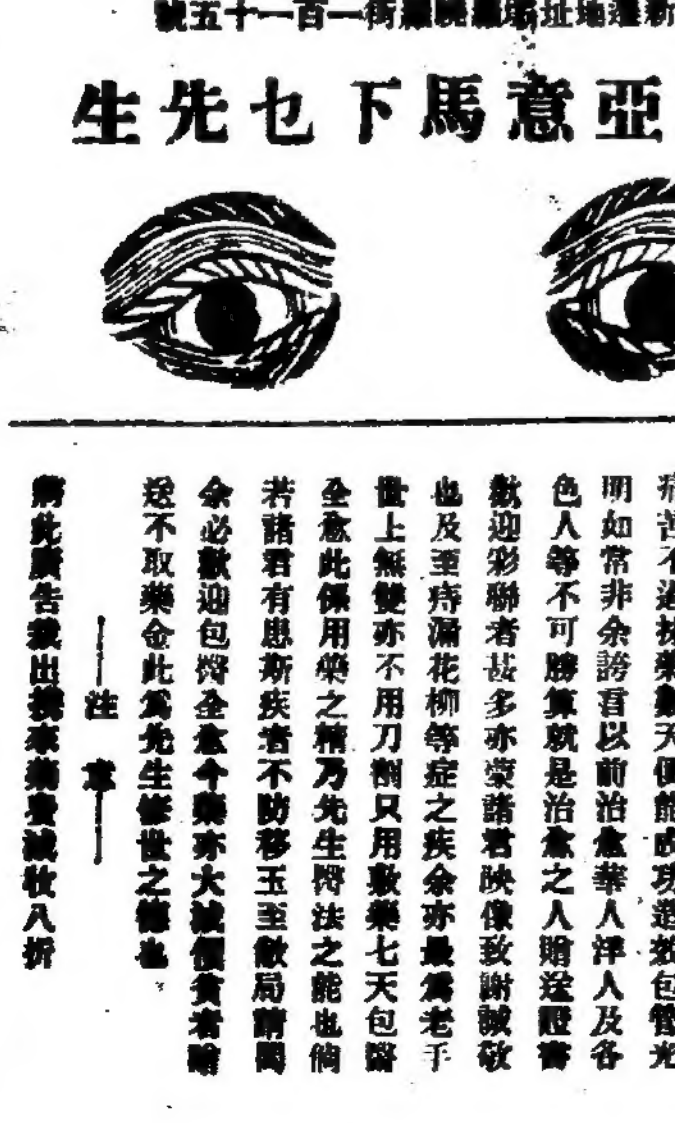 新遷地址現街一百一十五號
亞意馬下乜先生
痛苦不過扶藥數天便能成功造效包管光
明如常非余誇言以前治愈華人洋人及各
色人等不可勝算就是治愈之人贈送證書
歡迎彩聯者甚多亦蒙諸君映像致謝誠敬
也及至痔漏花柳等症之疾余亦最為老手
世上無雙亦不用刀割只用敷藥七天包醫
全愈此係用藥之精乃先生醫法之能也倘
若諸君有患斯疾者不妨移玉至敝局請閱
余必歡迎包醫全愈今藥亦大減價貧者贈
送不取藥金此為先生修世之德也
注意
將此廣告裁出攜來藥費減收八折